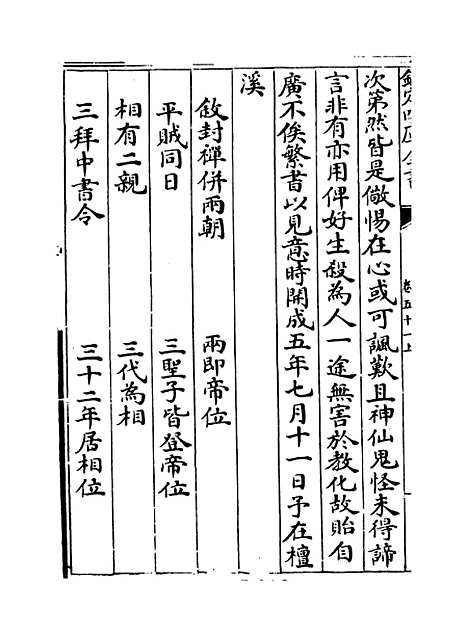 欽定四庫全書
卷五十一上
次第然皆是儆惕在心或可諷歎且神仙鬼怪未得諦
言非有亦用俾好生殺為人一途無害於教化故貽自
廣不俟繁書以見意時開成五年七月十一日予在檀
溪
敘封禪併兩朝 兩即帝位
平賊同日 三聖子皆登帝位
相有二親 三代為相
三拜中書令 三十二年居相位